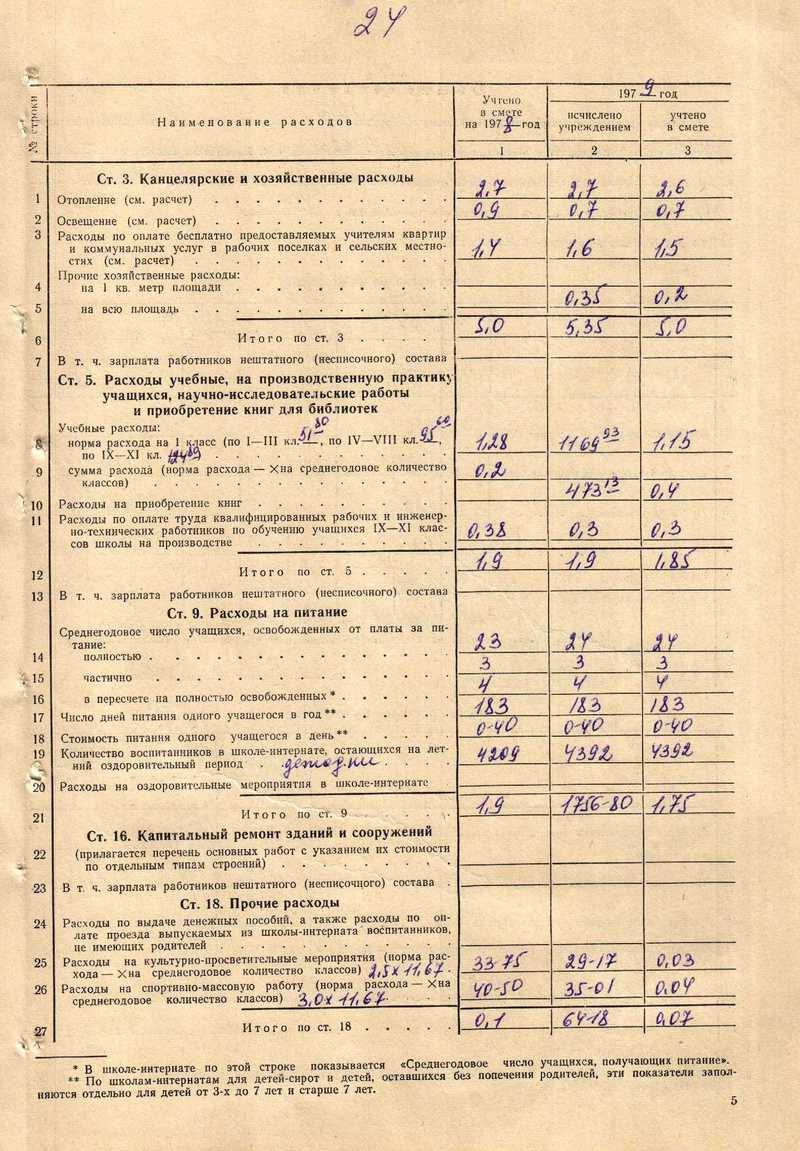 24
№ строки
Наименование расходов
Учтено в смете на 1978 год
1979 год
исчислено учреждением
учтено в смете
1 2 3
Ст. 3. Канцелярские и хозяйственные расходы
1 Отопление (см. расчет) 2,7 2,7 2,6
2 Освещение (см. расчет) 0,9 0,7 0,7
3 Расходы по оплате бесплатно предоставляемых учителям квартир
и коммунальных услуг в рабочих поселках и сельских местно-
стях (см. расчет) 1,4 1,6 1,5
Прочие хозяйственные расходы:
4 на 1 кв. метр площади
5 на всю площадь 0,35 0,2
6 Итого по ст. 3 5,0 5,35 5,0
7 В т. ч. зарплата работников нештатного (несписочного) состава
Ст. 5. Расходы учебные, на производственную практику
учащихся, научно-исследовательские работы
и приобретение книг для библиотек
Учебные расходы:
8 норма расхода на 1 класс (по I—III кл. 51-80, по IV—VIII кл. 95-60,
по IX—XI кл. 1,28 1169-93 1,15
9 сумма расхода (норма расхода — Хна среднегодовое количество
классов) 0,2
10 Расходы на приобретение книг 473-13 0,4
11 Расходы по оплате труда квалифицированных рабочих и инженер-
но-технических работников по обучению учащихся IX—XI клас-
сов школы на производстве 0,38 0,3 0,3
12 Итого по ст. 5 1,9 1,9 1,85
13 В т. ч. зарплата работников нештатного (несписочного) состава
Ст. 9. Расходы на питание
Среднегодовое число учащихся, освобожденных от платы за пи-
тание:
14 полностью 23 24 24
15 частично 3 3 3
16 в пересчете на полностью освобожденных * 4 4 4
17 Число дней питания одного учащегося в год ** 183 183 183
18 Стоимость питания одного учащегося в день ** 0-40 0-40 0-40
19 Количество воспитанников в школе-интернате, остающихся на лет-
ний оздоровительный период детодни 4209 4392 4392
20 Расходы на оздоровительные мероприятия в школе-интернате
21 Итого по ст. 9 1,9 1756-80 1,75
Ст. 16. Капитальный ремонт зданий и сооружений
22 (прилагается перечень основных работ с указанием их стоимости
по отдельным типам строений)
23 В т. ч. зарплата работников нештатного (несписочного) состава
Ст. 18. Прочие расходы
24 Расходы по выдаче денежных пособий, а также расходы по оп-
лате проезда выпускаемых из школы-интерната воспитанников,
не имеющих родителей
25 Расходы на культурно-просветительные мероприятия (норма рас-
хода — Хна среднегодовое количество классов) 2,5 х 11,67 33-75 29-17 0,03
26 Расходы на спортивно-массовую работу (норма расхода — Хна
среднегодовое количество классов) 3,0х 11,67 40-50 35-01 0,04
27 Итого по ст. 18 0,1 64-18 0,07
* В школе-интернате по этой строке показывается «Среднегодовое число учащихся, получающих питание».
** По школам-интернатам для детей-сирот и детей, оставшихся без попечения родителей, эти показатели запол-
няются отдельно для детей от 3-х до 7 лет и старше 7 лет.
5